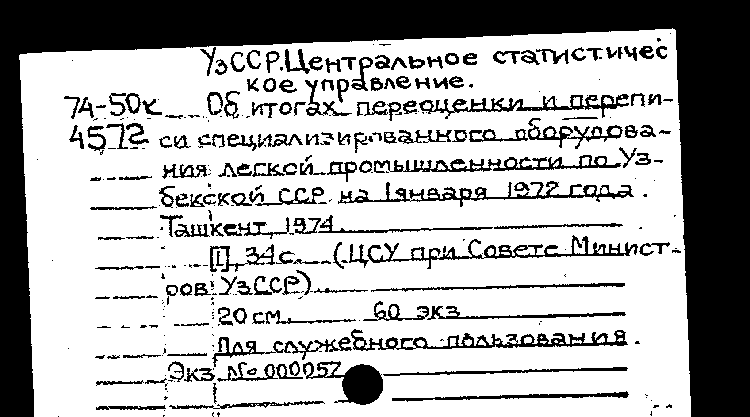 УзССР. Центральное статистичес
кое управление.
74-50к Об итогах переоценки и перепи-
4572 си специализированного оборудова-
ния легкой промышленности по Уз-
бекской ССР на 1 января 1972 года.
Ташкент, 1974.
[I], 34с. (ЦСУ при Совете Минист-
ров УзССР).
20см. 60 экз
Для служебного пользования.
Экз № 000057